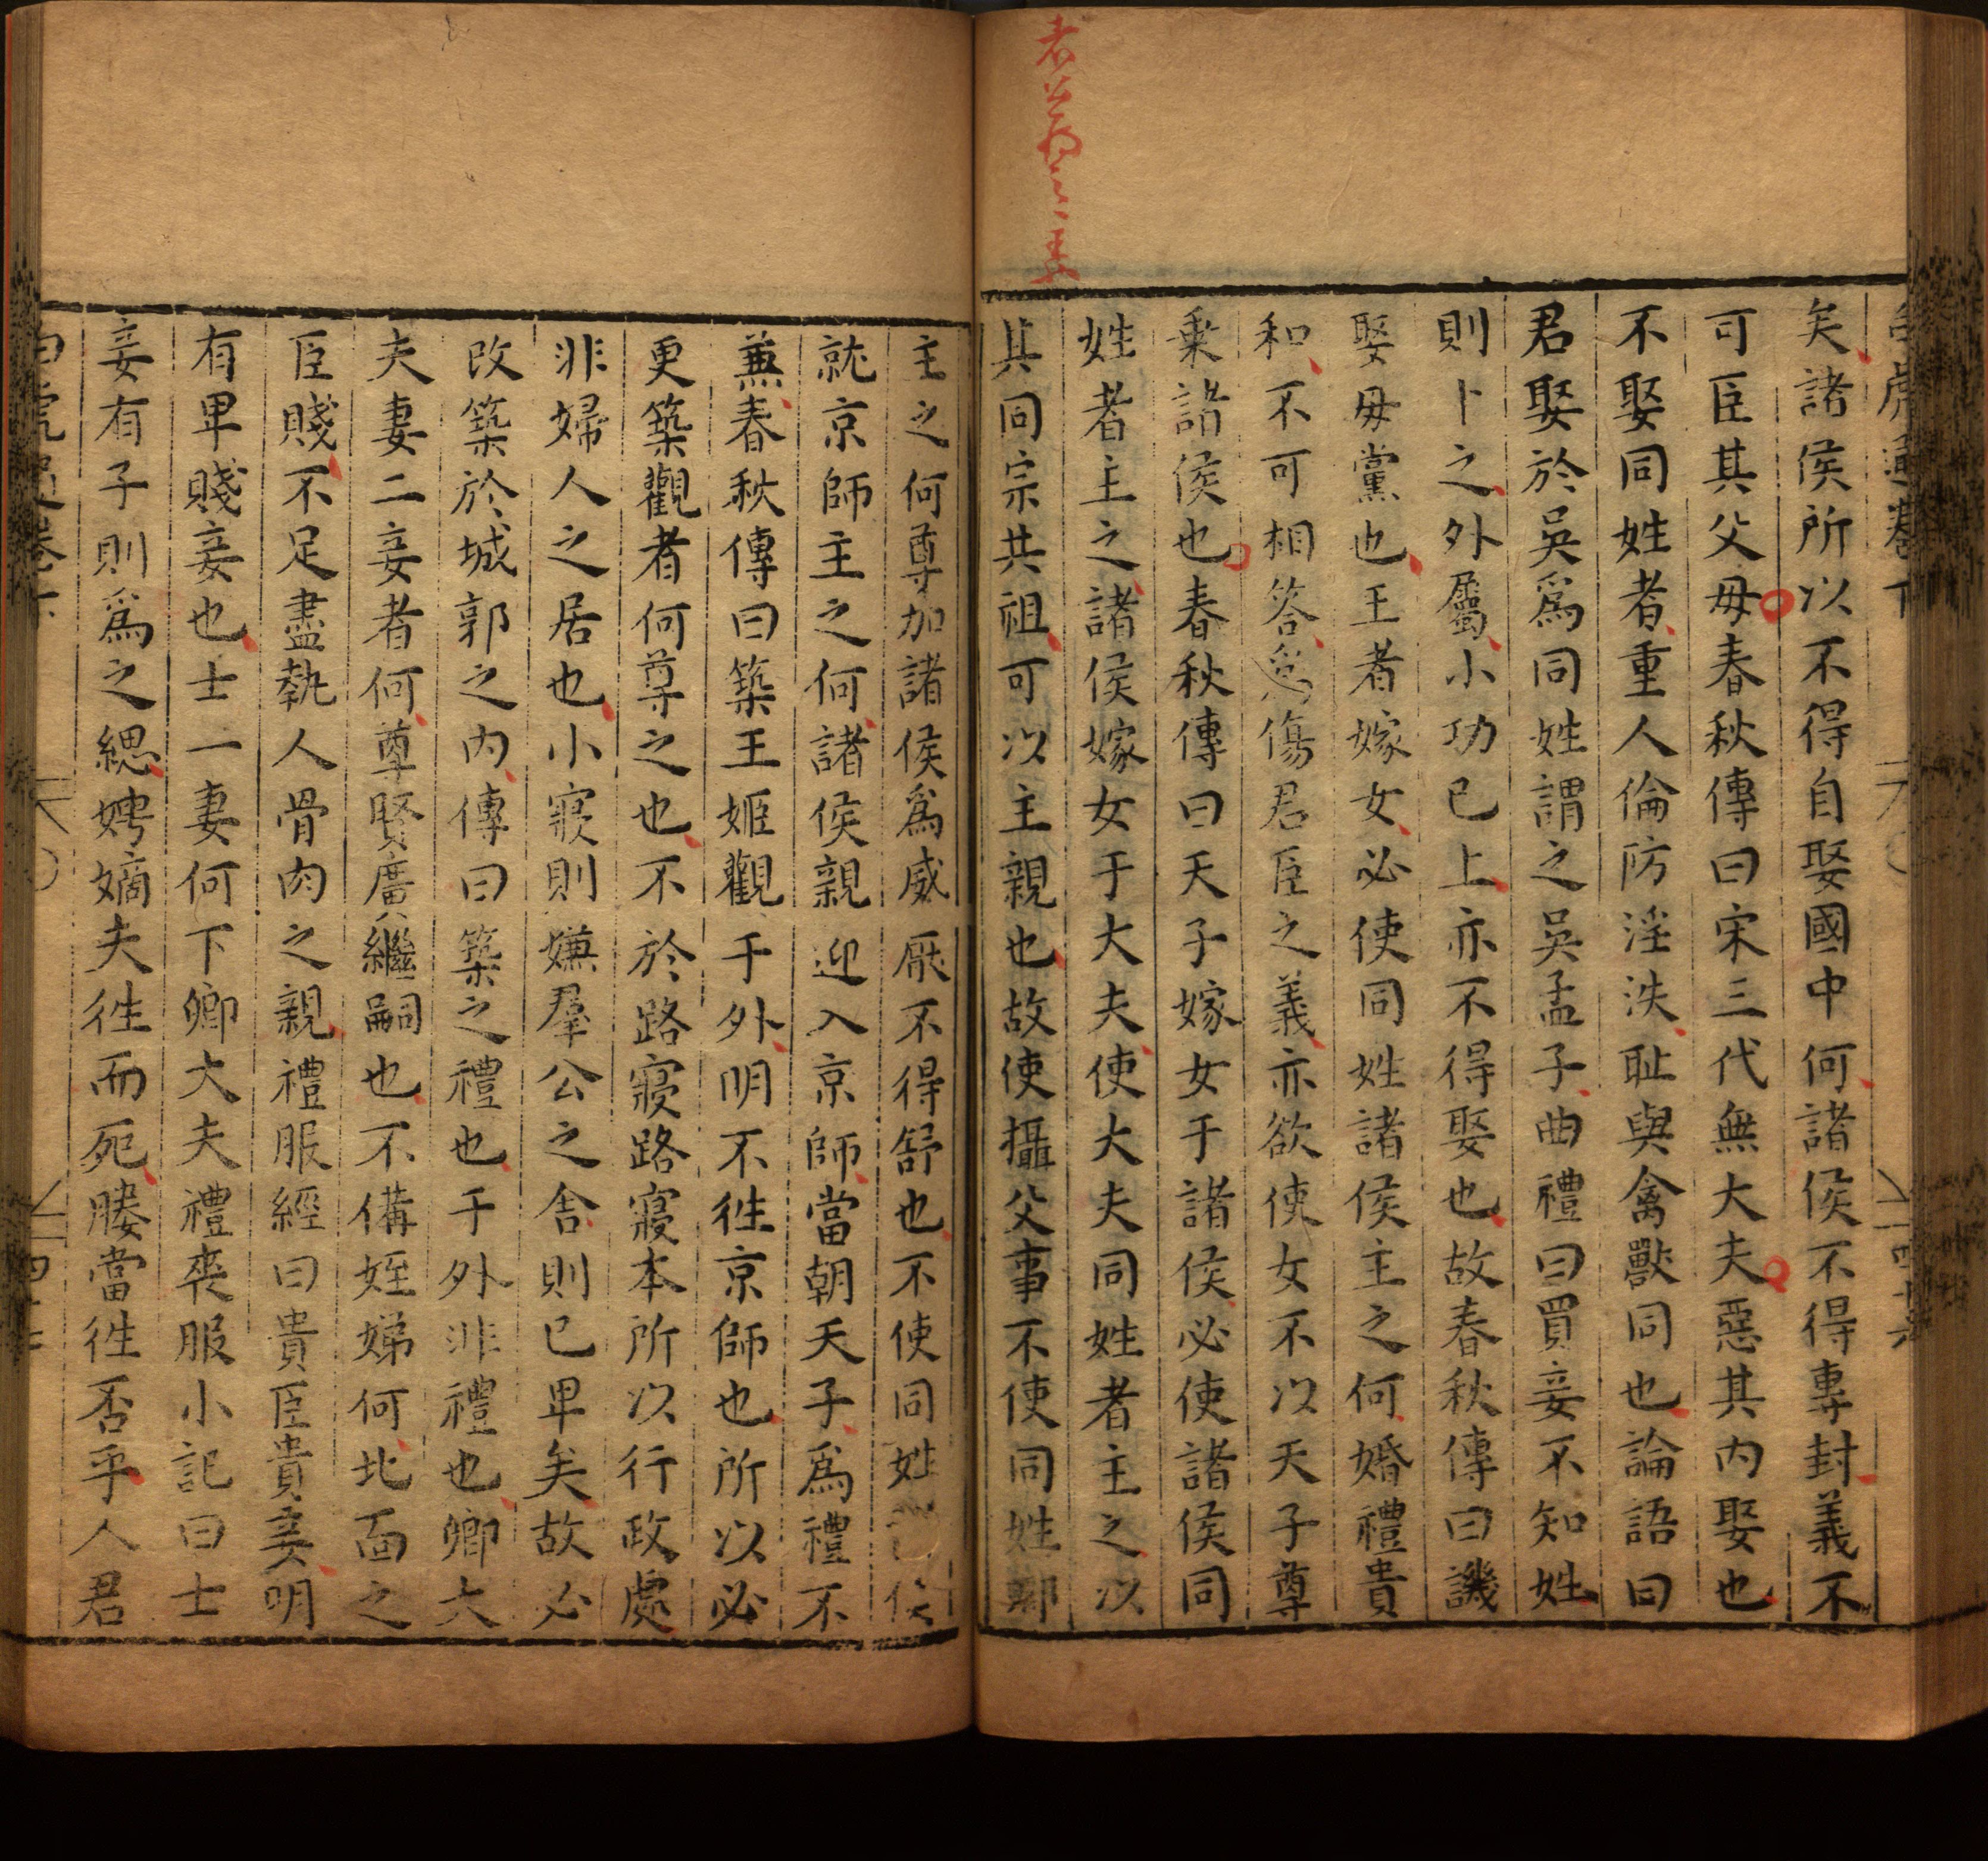 白虎通卷下
矣諸侯所以不得自娶國中何諸侯不得專封義不
可臣其父母春秋傳曰宋三代無大夫惡其内娶也
不娶同姓者重人倫防淫泆耻與禽獸同也論語曰
君娶於吳爲同姓謂之吳孟子曲禮曰買妾不知姓
則卜之外屬小功已上亦不得娶也故春秋傳曰譏
娶母黨也王者嫁女必使同姓諸侯主之何婚禮貴
和不可相答爲傷君臣之義亦欲使女不以天子尊
乗諸侯也春秋傳曰天子嫁女于諸侯必使諸侯同
姓者主之諸侯嫁女于大夫使大夫同姓者主之以
其同宗共祖可以主親也故使攝父事不使同姓卿
主之何尊加諸侯爲威厭不得舒也不使同姓諸侯
就京師主之何諸侯親迎入京師當朝天子爲禮不
兼春秋傳曰築王姬觀于外明不徃京師也所以必
更築觀者何尊之也不於路寢路寢本所以行政處
非婦人之居也小寢則嫌羣公之舍則已卑矣故必
改築於城郭之内傳曰築之禮也于外非禮也卿大
夫妻二妾者何尊賢廣繼嗣也不備姪娣何北面之
臣賤不足盡執人骨肉之親禮服經曰貴臣貴妾明
有卑賤妾也士一妻何下卿大夫禮喪服小記曰士
妾有子則爲之緦娉嫡夫徃而死媵當徃否乎人君